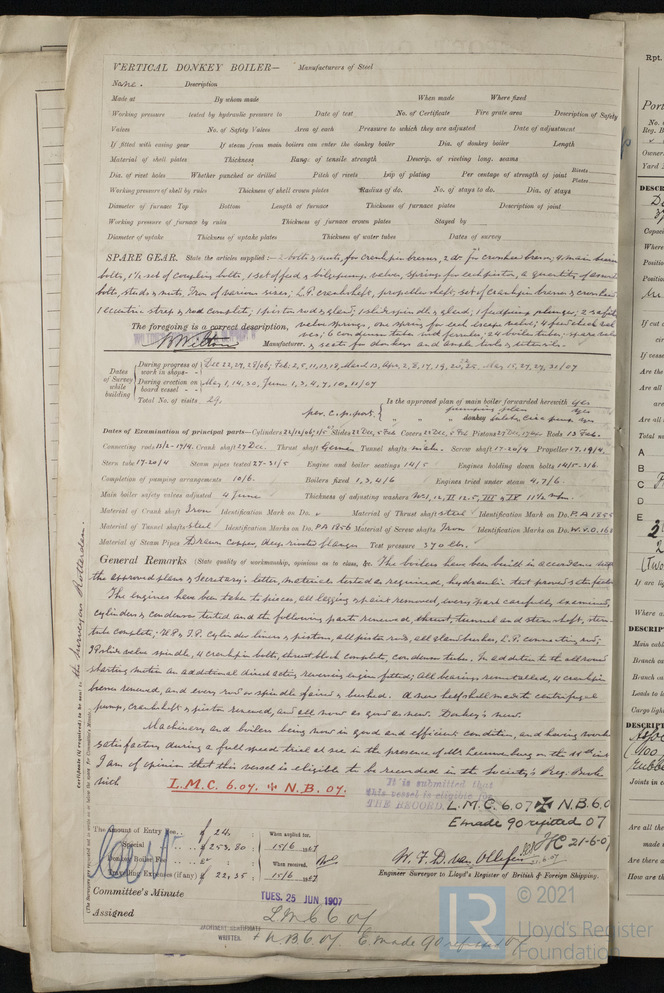 VERTICAL DONKEY BOILER— Manufacturers of Steel
None. Description
Made at By whom made When made Where fixed
Working pressure tested by hydraulic pressure to Date of test No. of Certificate Fire grate area Description of Safety
Valves No. of Safety Valves Area of each Pressure to which they are adjusted Date of adjustment
If fitted with easing gear If steam from main boilers can enter the donkey boiler Dia. of donkey boiler Length
Material of shell plates Thickness Rang. of tensile strength Descrip. of riveting long. seams
Dia. of rivet holes Whether punched or drilled Pitch of rivets Lap of plating Per centage of strength of joint Rivets Plates
Working pressure of shell by rules Thickness of shell crown plates Radius of do. No. of stays to do. Dia. of stays
Diameter of furnace Top Bottom Length of furnace Thickness of furnace plates Description of joint
Working pressure of furnace by rules Thickness of furnace crown plates Stayed by
Diameter of uptake Thickness of uptake plates Thickness of water tubes Dates of survey
SPARE GEAR. State the articles supplied:— 2 bolts & nuts, for crankpin brasses, 2 do for crosshead brasses, 4 main bearing
bolts, 1½ set of coupling bolts, 1 set of feed & bilge pump valves, springs for each piston, a quantity of assorted
bolts, studs & nuts, Iron of various sizes; L.P. crankshaft, propeller shaft, set of crankpin brasses & crosshead
1 eccentric strap & rod complete, 1 piston rod & gland, 1 slide spindle & gland, 1 feedpump plunger, 2 safety
The foregoing is a correct description, valve springs, one spring for each escape valve; 4 feed check val
ves; 6 condenser tubes and ferrules; 24 boiler tubes;
Manufacturer. & seats for donkeys and
Dates of Survey while building
During progress of work in shops - - Dec 22, 27, 28/06, Feb. 2, 5, 11, 13, 18, March 13, Apr. 2, 8, 17, 19, 20, 25, May 15, 27, 29, 30/07
During erection on board vessel - - May 1, 14, 30, June 1, 3, 4, 7, 10, 11/07
Total No. of visits. 29.
Is the approved plan of main boiler forwarded herewith yes
" " " donkey " " "
Dates of Examination of principal parts—Cylinders Slides Covers Pistons Rods 13 Feb.
Connecting rods 13/2-17/4. Crank shaft 27 Dec. Thrust shaft Tunnel shafts Screw shaft 17-20/4 Propeller 17, 19/4.
Stern tube 17-20/4 Steam pipes tested 27-31/5 Engine and boiler seatings 14/5 Engines holding down bolts 14/5-3/6.
Completion of pumping arrangements 10/6. Boilers fixed 1, 3, 4/6 Engines tried under steam 4, 7/6
Main boiler safety valves adjusted 4 June Thickness of adjusting washers
Material of Crank shaft Iron Identification Mark on Do. Material of Thrust shaft steel Identification Mark on Do. P.A 1855
Material of Tunnel shafts steel Identification Marks on Do. PA 1856 Material of Screw shafts Iron Identification Marks on Do.
Material of Steam Pipes Drawn Copper, rivetted flanges Test pressure 370 lbs.
General Remarks (State quality of workmanship, opinions as to class, &c. The boilers have been built in accordance with
the approved plans & Secretary's letter, materials tested as required, hydraulic test proved satisfactory
The engines have been taken to pieces, all legging & paint removed, every part carefully examined,
cylinders & condenser tested and the following parts renewed, thrust, tunnel and stern shaft, stern
tube complete; H.P. & I.P. cylinder liners & pistons, all piston rods, all gland bushes, L.P. connecting rod,
I.P. slide valve spindle, 4 crankpin bolts, thrust block complete, condenser tubes. In addition to the all round
starting motion an additional direct acting reversing engine fitted; All bearings remetalled, 4 crankpin
brasses renewed, and every rod or spindle faired & bushed. A new half shell made to centrifugal
pump, crankshaft & piston renewed, and all now as good as new. Donkeys new.
Machinery and boilers being now in good and efficient condition, and having worked
satisfactory during a full speed trial at sea in the presence of Mr. on the
I am of opinion that this vessel is eligible to be recorded in the Society's Reg. Book
with L.M.C. 6.07. ✠ N.B. 07.
It is submitted that
this vessel is eligible for
THE RECORD. L.M.C. 6.07 ✠ N.B. 6.0
E made 90 refitted 07
21-6-07
The amount of Entry Fee £ 24. When applied for.
Special £ 253.80 15/6 1907
Donkey Boiler Fee £ When received.
Travelling Expenses (if any) £ 22.35 15/6 1907
Engineer Surveyor to Lloyd's Register of British & Foreign Shipping.
Committee's Minute TUES. 25 JUN 1907
Assigned L.M.C 6.07
MACHINERY CERTIFICATE
WRITTEN. + N.B 6.07 E made 90 refitted 07
Certificate (if required) to be sent to the Surveyors Rotterdam.
(The Surveyors are requested not to write on or below the space for Committee's Minute.)
Rpt.
Port
No.
Reg. B
Owner
Yard
DESCR
Capac
Where
Positio
Positio
If cut
cir
If cesse
Are the
Are all
are
Total n
A
B
C
D
E
If are lig
Where a
DESCRIPT
Main cabl
Branch ca
Branch ca
Leads to l
Cargo ligh
DESCRIPT
Joints in c
Are all the
made
Are there a
How are th
© 2021
LR
Lloyd's Register
Foundation